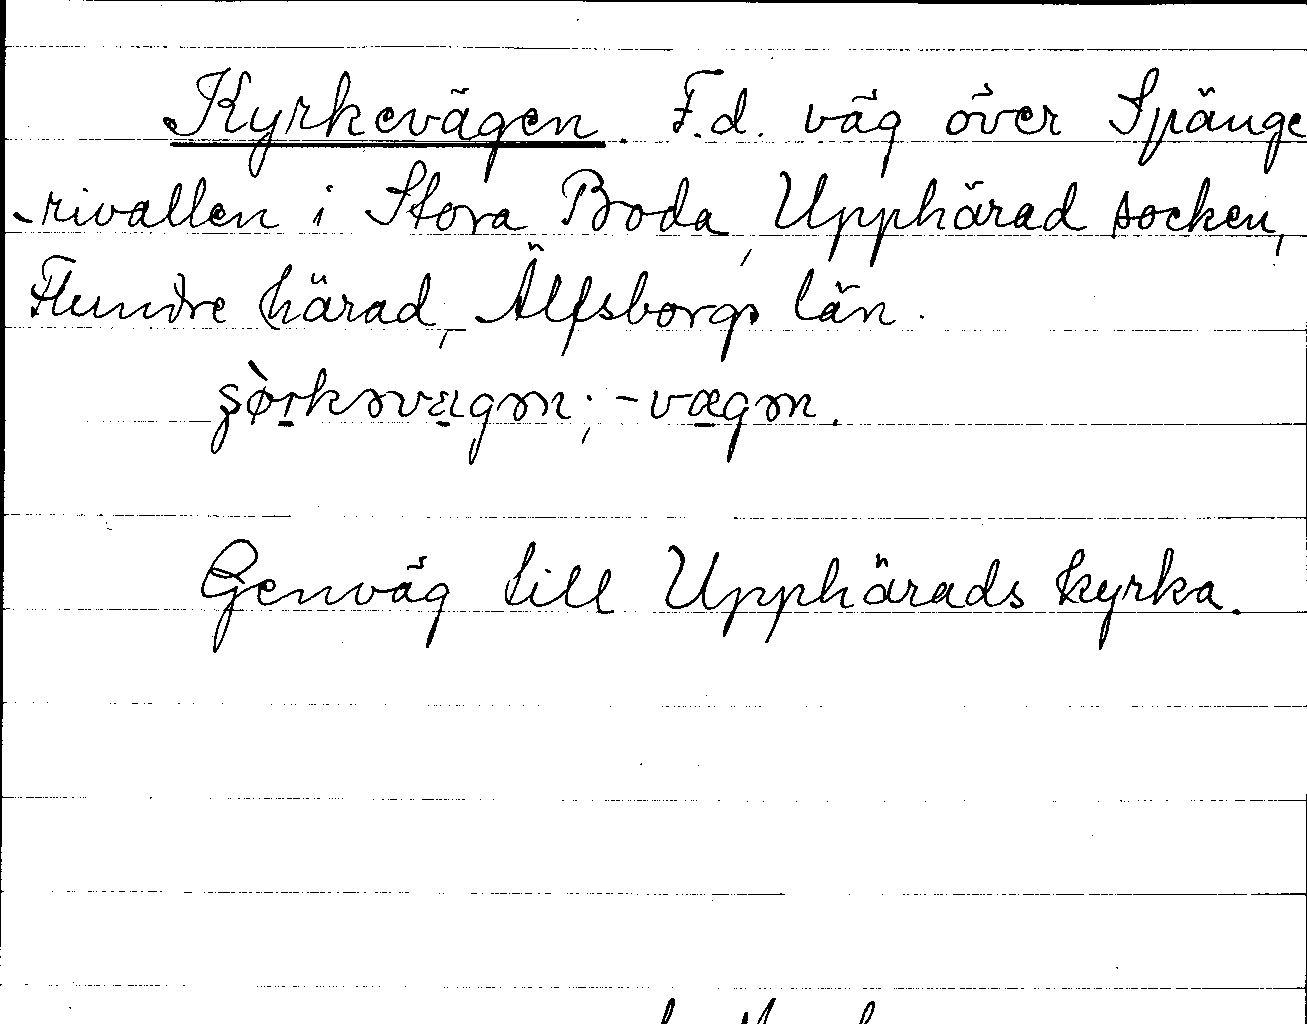 Kyrkevägen. F.d. väg över Spänge
-rivallen i Stora Boda, Upphärad socken,
Flundre härad, Älfsborgs län.
Genväg till Upphärads kyrka.